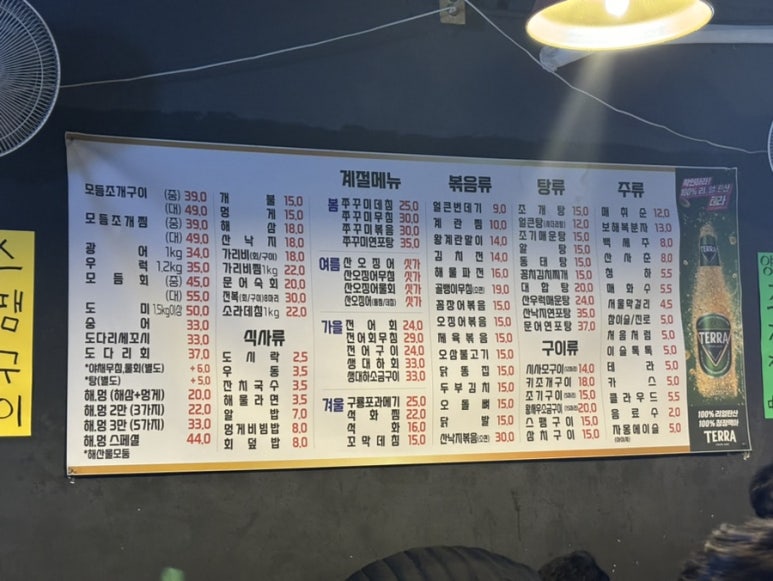 모듬조개구이 (중) 39,0
(대) 49,0
모듬조개찜 (중) 39,0
(대) 49,0
광어 1kg 34,0
우럭 1.2kg 35,0
모듬회 (중) 45,0
(대) 55,0
도미 1.5kg이상 50,0
숭어 33,0
도다리세꼬시 33,0
도다리회 37,0
*야채무침,물회(별도) +6.0
*탕(별도) +5.0
해.멍 (해삼+멍게) 20,0
해.멍 2만 (3가지) 22,0
해.멍 3만 (5가지) 33,0
해.멍 스페셜 44,0
*해산물모둠
개불 15,0
멍게 15,0
해삼 18,0
산낙지 18,0
가리비(회/구이) 18,0
가리비찜 1kg 22,0
문어숙회 20,0
전복(회/구이)8마리 30,0
소라데침 1kg 22,0
식사류
도시락 2,5
우동 3,5
잔치국수 3,5
해물라면 3,5
알밥 7,0
멍게비빔밥 8,0
회덮밥 8,0
계절메뉴
봄 쭈꾸미데침 25,0
쭈꾸미무침 30,0
쭈꾸미볶음 30,0
쭈꾸미연포탕 35,0
여름 산오징어 싯가
산오징어무침 싯가
산오징어물회 싯가
산오징어(통찜/데침) 싯가
가을 전어회 24,0
전어회무침 29,0
전어구이 24,0
생대하회 33,0
생대하소금구이 33,0
겨울 구룡포과메기 25,0
석화찜 22,0
석화 16,0
꼬막데침 15,0
볶음류
얼큰번데기 9,0
계란찜 10,0
왕계란말이 14,0
김치전 14,0
해물파전 16,0
골뱅이무침(오면) 19,0
꼼장어볶음 15,0
오징어볶음 15,0
제육볶음 15,0
오삼불고기 15,0
닭똥집 15,0
두부김치 15,0
오돌뼈 15,0
닭발 15,0
산낙지볶음(오면) 30,0
탕류
조개탕 15,0
얼큰탕 12,0
조기매운탕 15,0
알탕 15,0
동태탕 15,0
꽁치김치찌개 15,0
대합탕 20,0
산우럭매운탕 24,0
산낙지연포탕 35,0
문어연포탕 37,0
구이류
시사모구이 14,0
키조개구이 18,0
조기구이 15,0
왕새우소금구이 20,0
스팸구이 15,0
삼치구이 15,0
주류
매취순 12,0
보해복분자 13,0
백세주 8,0
산사춘 8,0
청하 5,5
매화수 5,5
서울막걸리 4,5
참이슬/진로 5,0
처음처럼 5,0
이슬톡톡 5,0
테라 5,0
카스 5,0
클라우드 5,5
음료수 2,0
자몽에이슬 5,0
100% 리얼탄산
100% 청정맥아
TERRA
TERRA
TERRA
스팸구이